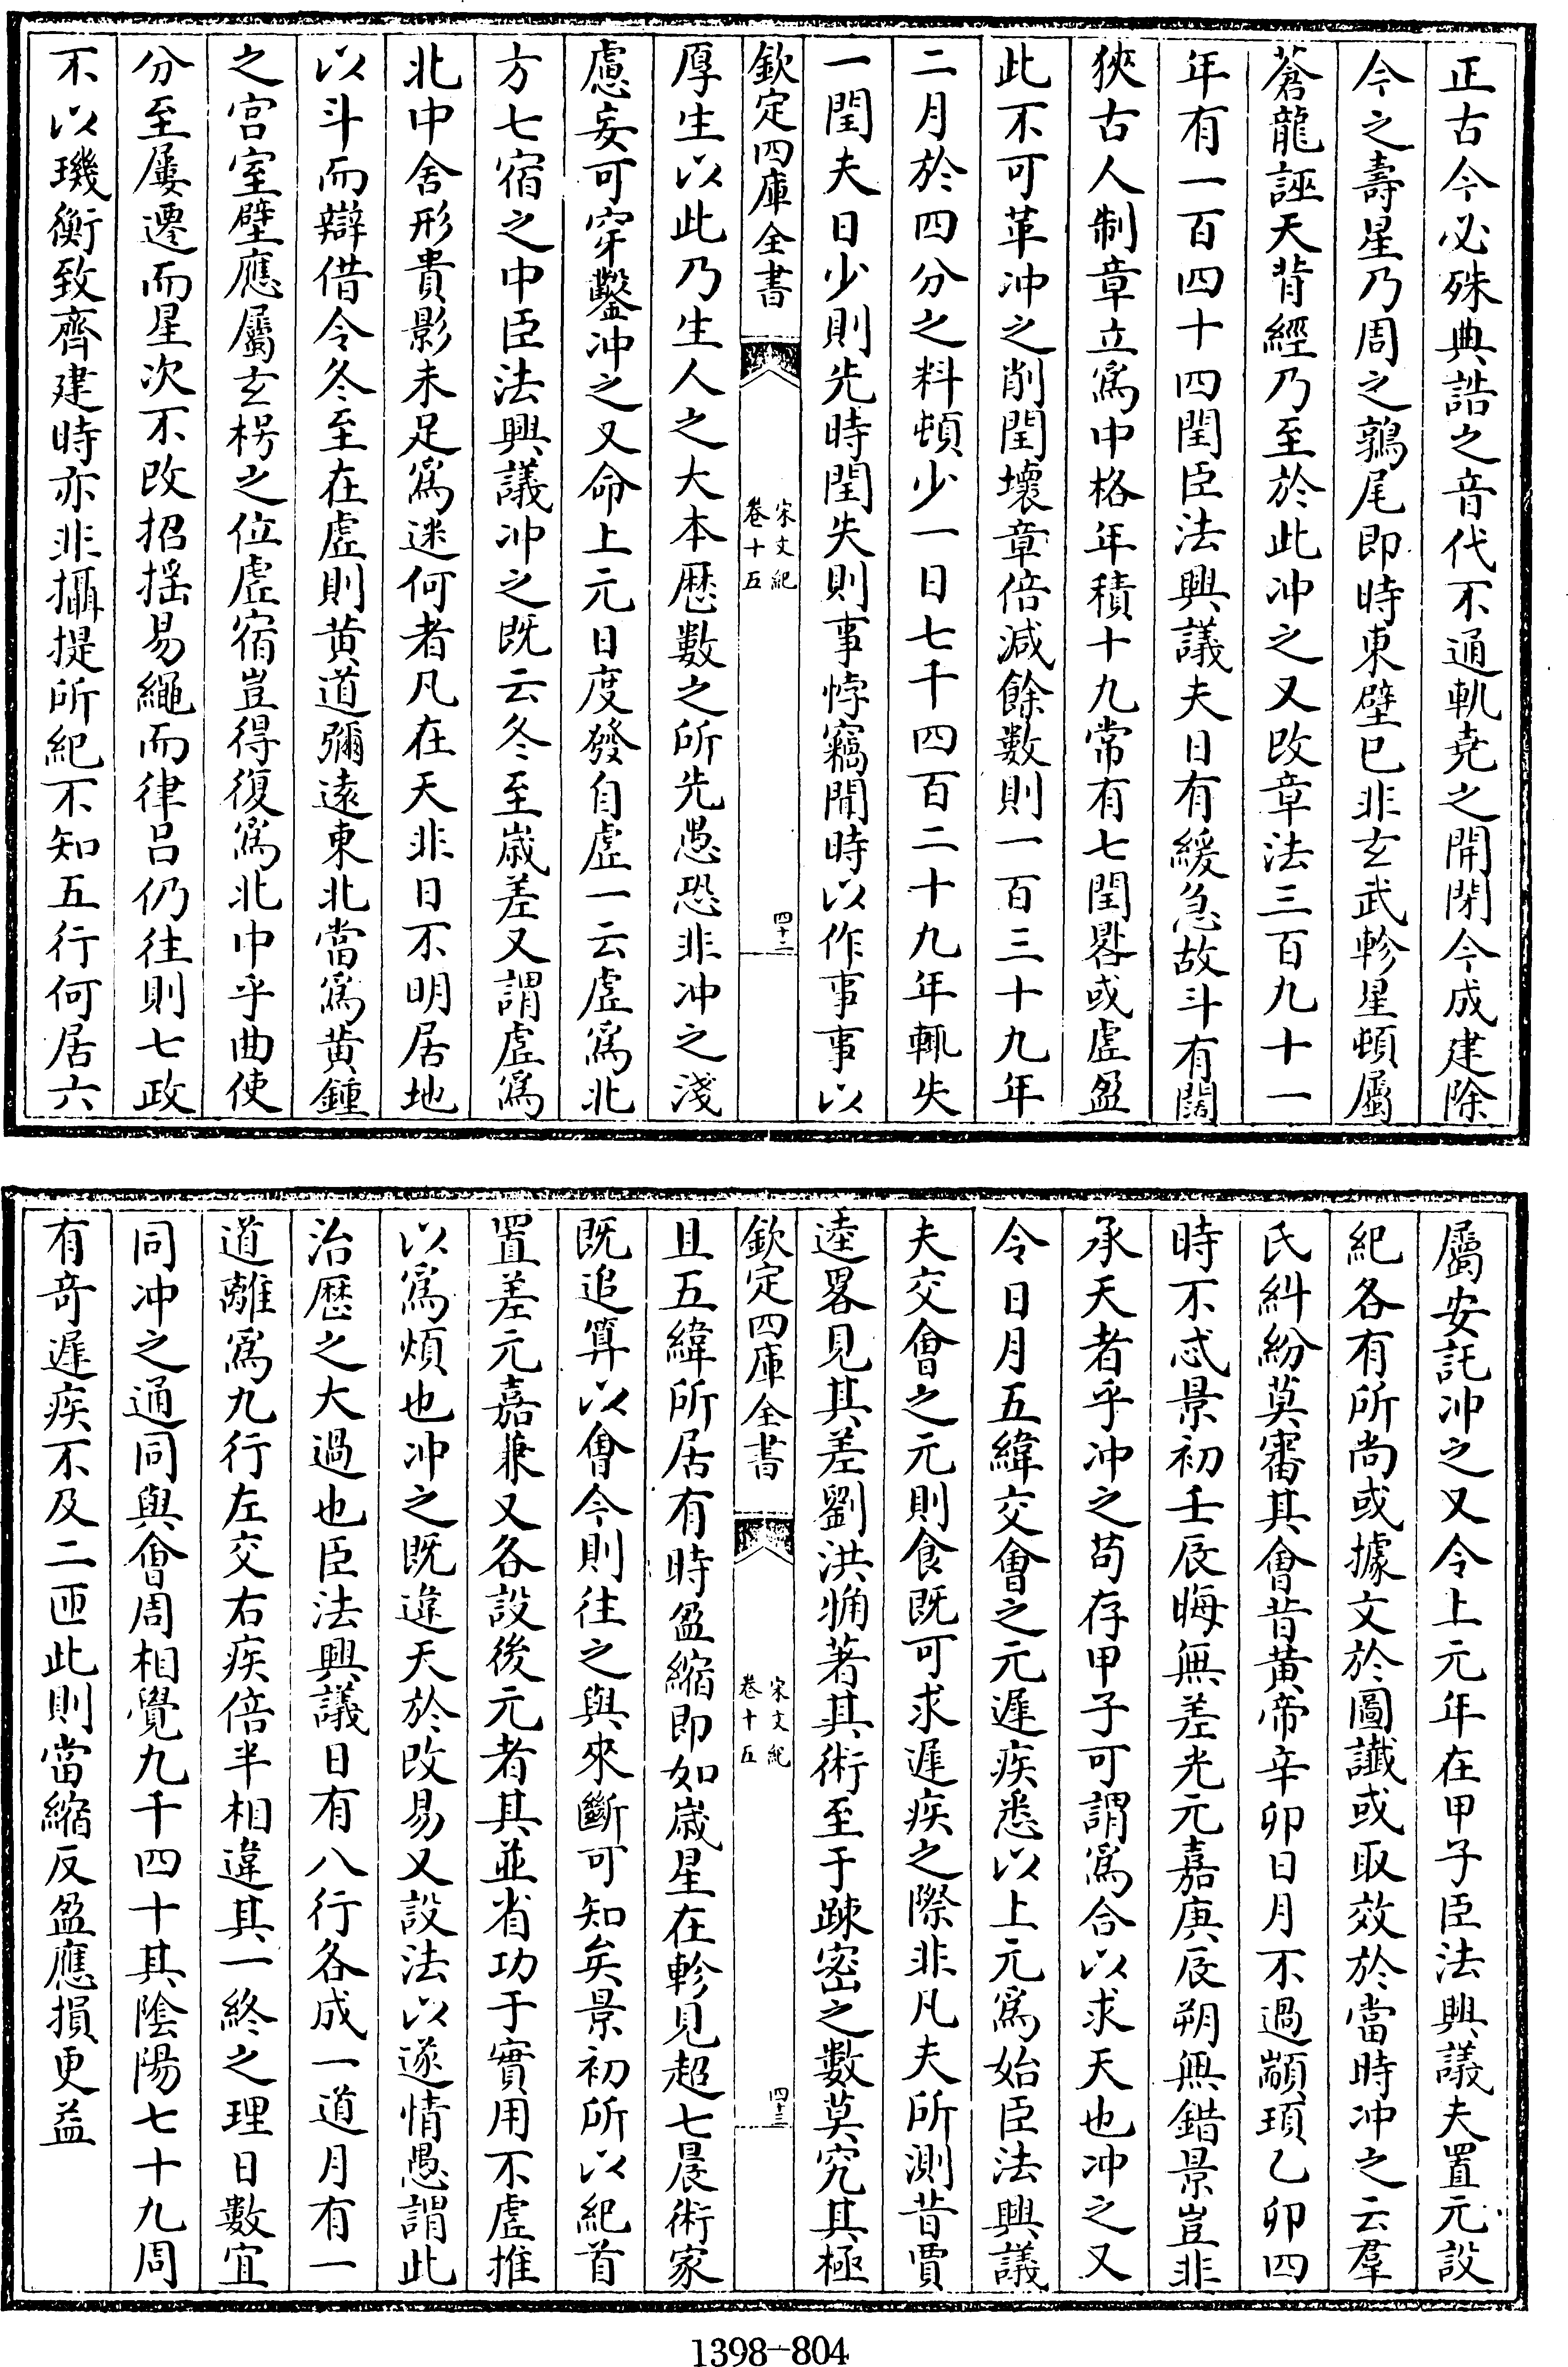 正古今必殊典誥之音代不通軌堯之開閉今成建除
今之壽星乃周之鶉尾即時東壁已非玄武軫星頓屬
蒼龍誣天背經乃至於此冲之又改章法三百九十一
年有一百四十四閏臣法興議夫日有緩急故斗有闊
狹古人制章立爲中格年積十九常有七閏晷或虛盈
此不可革冲之削閏壞章倍減餘數則一百三十九年
二月於四分之科頓少一日七千四百二十九年輒失
一閏夫日少則先時閏失則事悖竊聞時以作事事以
欽定四庫全書
宋文紀
卷十五
四十二
厚生以此乃生人之大本厯數之所先愚恐非冲之淺
慮妄可穿鑿冲之又命上元日度發自虛一云虛爲北
方七宿之中臣法興議冲之既云冬至歳差又謂虛爲
北中舍形責影未足爲迷何者凡在天非日不明居地
以斗而辯借令冬至在虛則黄道彌遠東北當爲黄鍾
之宫室壁應屬玄枵之位虛宿豈得復爲北中乎曲使
分至屢遷而星次不改招揺易繩而律吕仍往則七政
不以璣衡致齊建時亦非攝提所紀不知五行何居六
屬安託冲之又令上元年在甲子臣法興議夫置元設
紀各有所尚或據文於圖讖或取效於當時冲之云羣
氏糾紛莫審其㑹昔黄帝辛卯日月不過顓頊乙卯四
時不忒景初壬辰晦無差光元嘉庚辰朔無錯景豈非
承天者乎冲之苟存甲子可謂爲合以求天也冲之又
令日月五緯交㑹之元遲疾悉以上元爲始臣法興議
夫交㑹之元則食既可求遲疾之際非凡夫所測昔賈
逵畧見其差劉洪觕著其術至于疎密之數莫究其極
欽定四庫全書
宋文紀
卷十五
四十三
且五緯所居有時盈縮即如歳星在軫見超七晨術家
既追算以㑹今則往之與來斷可知矣景初所以紀首
置差元嘉兼又各設後元者其並省功于實用不虛推
以爲煩也冲之既違天於改易又設法以遂情愚謂此
治厯之大過也臣法興議日有八行各成一道月有一
道離爲九行左交右疾倍半相違其一終之理日數宜
同冲之通同與㑹周相覺九千四十其隂陽七十九周
有竒遲疾不及二匝此則當縮反盈應損更益
1398-804